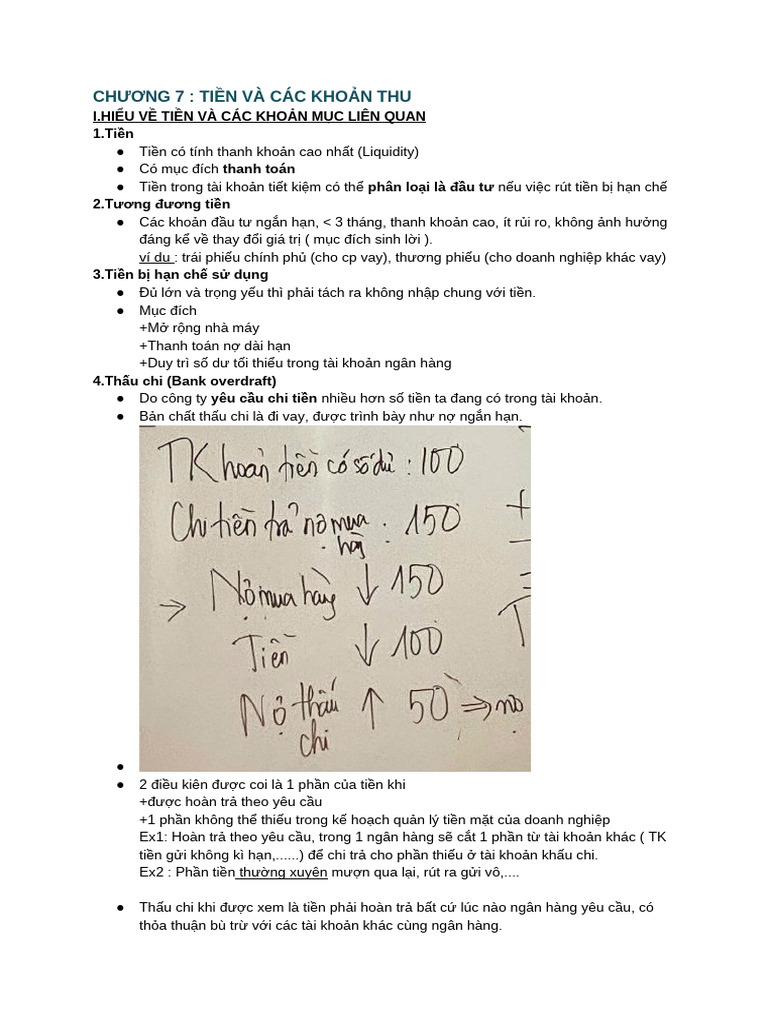 CHƯƠNG 7 : TIỀN VÀ CÁC KHOẢN THU
I.HIỂU VỀ TIỀN VÀ CÁC KHOẢN MỤC LIÊN QUAN
1.Tiền
● Tiền có tính thanh khoản cao nhất (Liquidity)
● Có mục đích thanh toán
● Tiền trong tài khoản tiết kiệm có thể phân loại là đầu tư nếu việc rút tiền bị hạn chế
2.Tương đương tiền
● Các khoản đầu tư ngắn hạn, < 3 tháng, thanh khoản cao, ít rủi ro, không ảnh hưởng
đáng kể về thay đổi giá trị ( mục đích sinh lời ).
ví dụ : trái phiếu chính phủ (cho cp vay), thương phiếu (cho doanh nghiệp khác vay)
3.Tiền bị hạn chế sử dụng
● Đủ lớn và trọng yếu thì phải tách ra không nhập chung với tiền.
● Mục đích
+Mở rộng nhà máy
+Thanh toán nợ dài hạn
+Duy trì số dư tối thiểu trong tài khoản ngân hàng
4.Thấu chi (Bank overdraft)
● Do công ty yêu cầu chi tiền nhiều hơn số tiền ta đang có trong tài khoản.
● Bản chất thấu chi là đi vay, được trình bày như nợ ngắn hạn.
TKhoản tiền có số dư : 100
Chi tiền trả nợ mua hàng : 150
→ Nợ mua hàng ↓ 150
Tiền ↓ 100
Nợ thấu chi ↑ 50 => nợ
● 2 điều kiên được coi là 1 phần của tiền khi
+được hoàn trả theo yêu cầu
+1 phần không thể thiếu trong kế hoạch quản lý tiền mặt của doanh nghiệp
Ex1: Hoàn trả theo yêu cầu, trong 1 ngân hàng sẽ cắt 1 phần từ tài khoản khác ( TK
tiền gửi không kì hạn,......) để chi trả cho phần thiếu ở tài khoản khấu chi.
Ex2 : Phần tiền thường xuyên mượn qua lại, rút ra gửi vô,....
● Thấu chi khi được xem là tiền phải hoàn trả bất cứ lúc nào ngân hàng yêu cầu, có
thỏa thuận bù trừ với các tài khoản khác cùng ngân hàng.